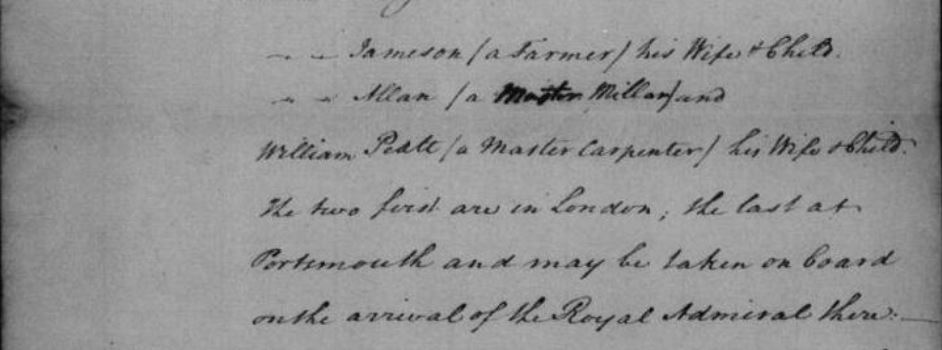 — — Jameson / a Farmer / his Wife & Child.
— — Allan / a Master Millar / and
William Peatt / a Master Carpenter / his Wife & Child.
The two first are in London; the last at
Portsmouth and may be taken on board
on the arrival of the Royal Admiral there.—